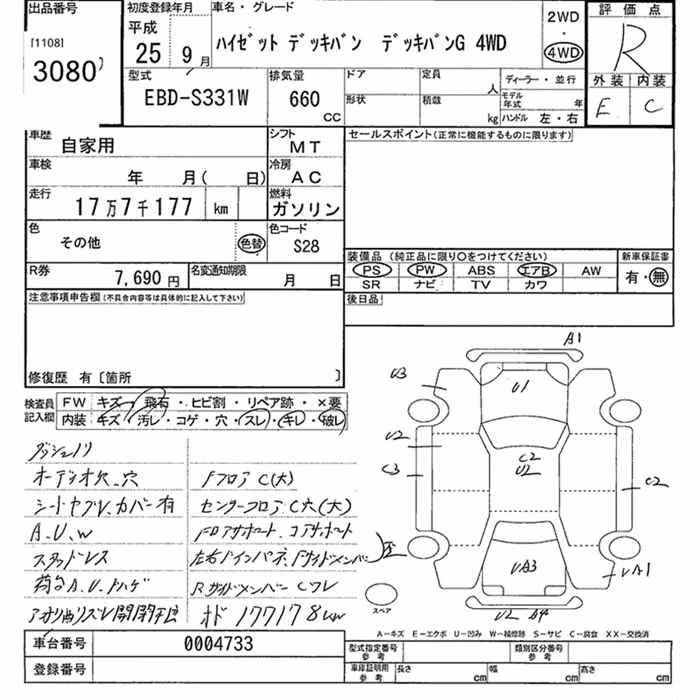 出品番号
[1108]
3080
初度登録年月
平成
25 9月
車名・グレード
ハイゼット デッキバン デッキバンG 4WD
2WD
・
4WD
評価点
R
外装 内装
E C
型式
EBD-S331W
排気量
660
CC
ドア
定員
人
形状
積載
kg
ディーラー・並行
モデル年式 年
ハンドル 左・右
車歴
自家用
シフト
MT
車検
年 月( 日)
冷房
AC
走行
17万7千177 km
燃料
ガソリン
色
その他
色替
色コード
S28
R券
7,690 円
名変通知期限
月 日
セールスポイント(正常に機能するものに限ります)
装備品 (純正品に限り○をつけてください)
PS PW ABS エアB AW
SR ナビ TV カワ
新車保証書
有・無
後日品
注意事項申告欄(不具合内容等は具体的に記入して下さい)
修復歴 有〔箇所 〕
検査員記入欄
FW キズ・飛石・ヒビ割・リペア跡・×要
内装 キズ・汚レ・コゲ・穴・スレ・キレ・破レ
オーディオ欠.穴
シートヤブレ.カバー有
A.U.W
スタッドレス
荷台A.U.トハゲ
Fフロア C(大)
センターフロア C穴(大)
Fロアサポート.コアサポート
左右Fインパネ.Fサイドメンバー
Rサイドメンバー C
オド 177178km
A1
U3
U1
U2
C3
C2
U2
C2
UA3
UA1
U2 B4
スペア
A-キズ E-エクボ U-凹み W-補修跡 S-サビ C-腐食 XX-交換済
車台番号 0004733
登録番号
型式指定番号
参考
類別区分番号
参考
車庫証明用
参考
長さ cm
幅 cm
高さ cm